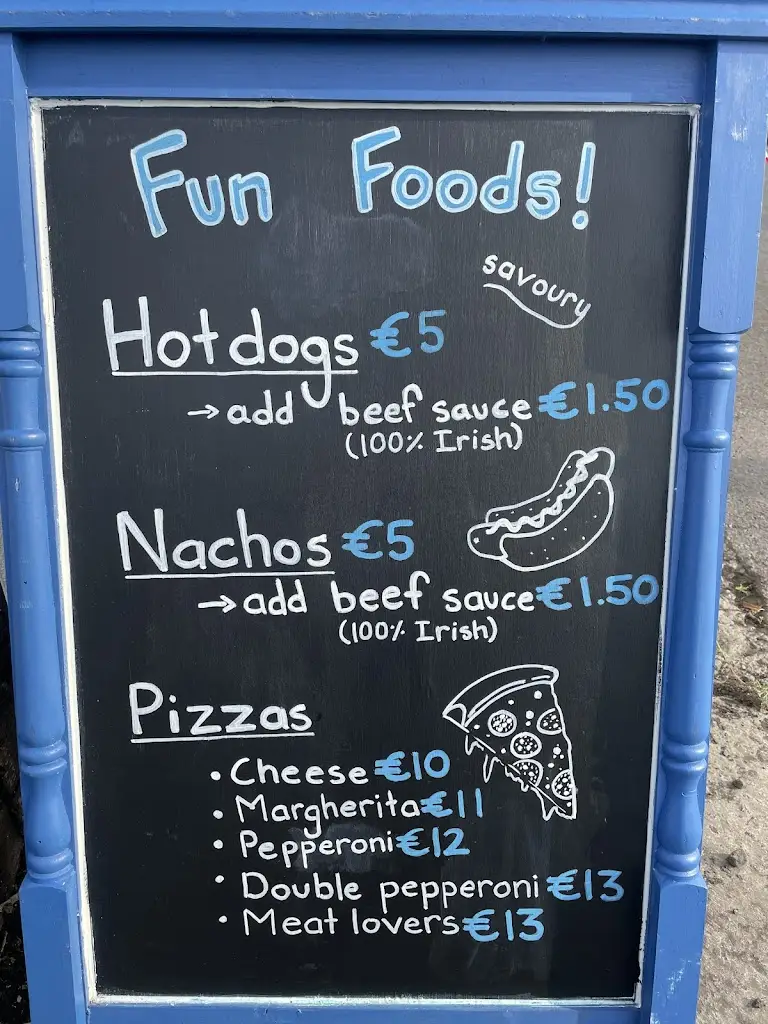 Fun Foods!
savoury
Hotdogs €5
→ add beef sauce €1.50
(100% Irish)
Nachos €5
→ add beef sauce €1.50
(100% Irish)
Pizzas
• Cheese €10
• Margherita €11
• Pepperoni €12
• Double pepperoni €13
• Meat lovers €13